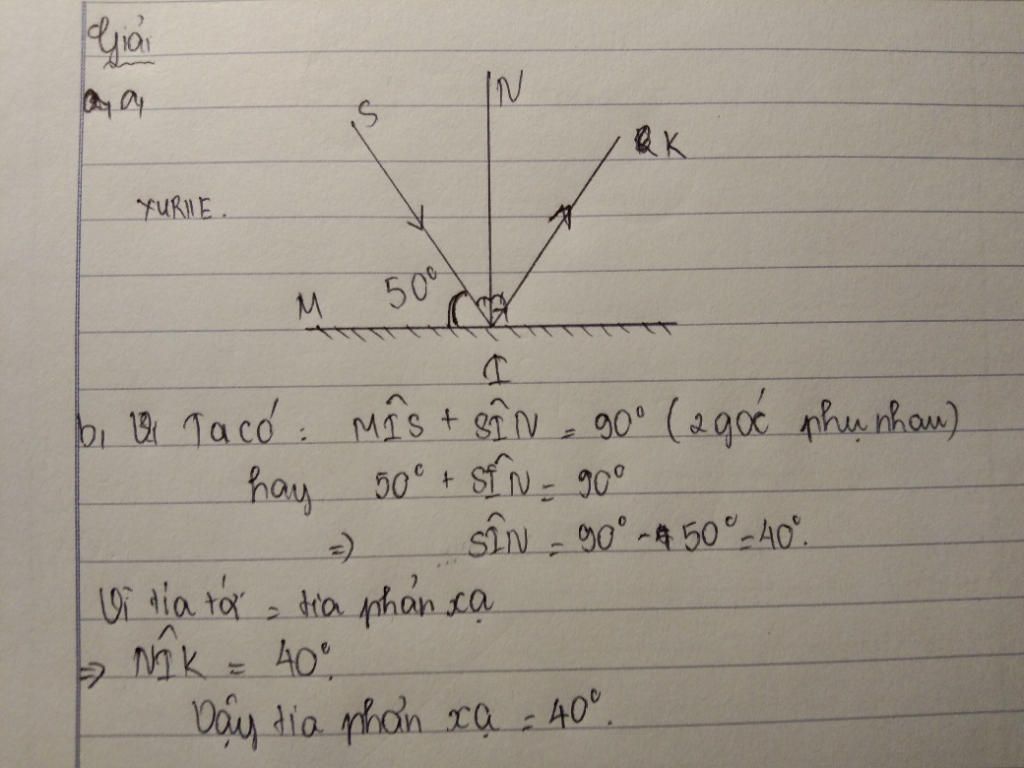 Giải
a,
S
N
K
YURIIE.
50°
M
I
b, Ta có: MÎS + SÎN = 90° (2 góc phụ nhau)
hay 50° + SÎN = 90°
=> SÎN = 90° - 50° = 40°.
Vì tia tới = tia phản xạ
=> NÎK = 40°.
Vậy tia phản xạ = 40°.